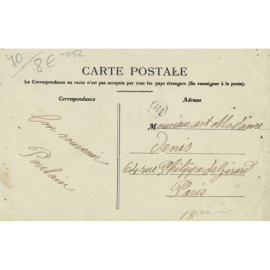 70
8€ -052
CARTE POSTALE
La Correspondance au recto n'est pas acceptée par tous les pays étrangers (Se renseigner à la poste).
Correspondance
Adresse
Bon souvenir
Poulain
Monsieur et Madame
Denis
64 rue Philippe de Girard
Paris
18